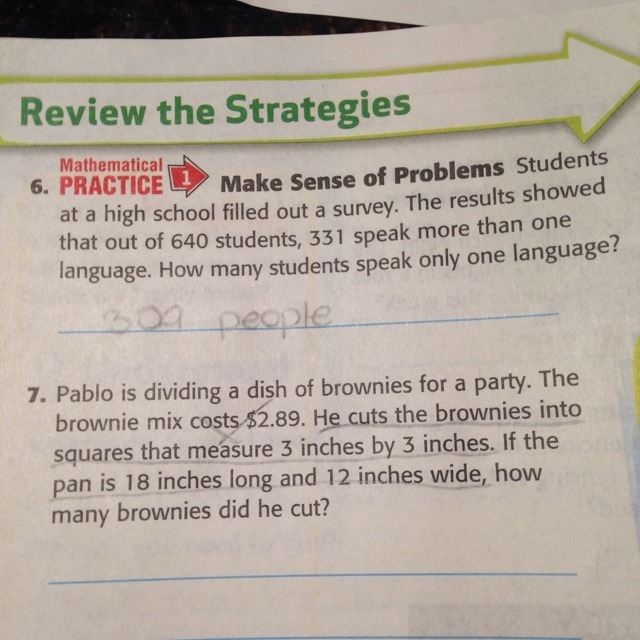 Review the Strategies
6. Mathematical
PRACTICE 1 Make Sense of Problems Students
at a high school filled out a survey. The results showed
that out of 640 students, 331 speak more than one
language. How many students speak only one language?
309 people
7. Pablo is dividing a dish of brownies for a party. The
brownie mix costs $2.89. He cuts the brownies into
squares that measure 3 inches by 3 inches. If the
pan is 18 inches long and 12 inches wide, how
many brownies did he cut?